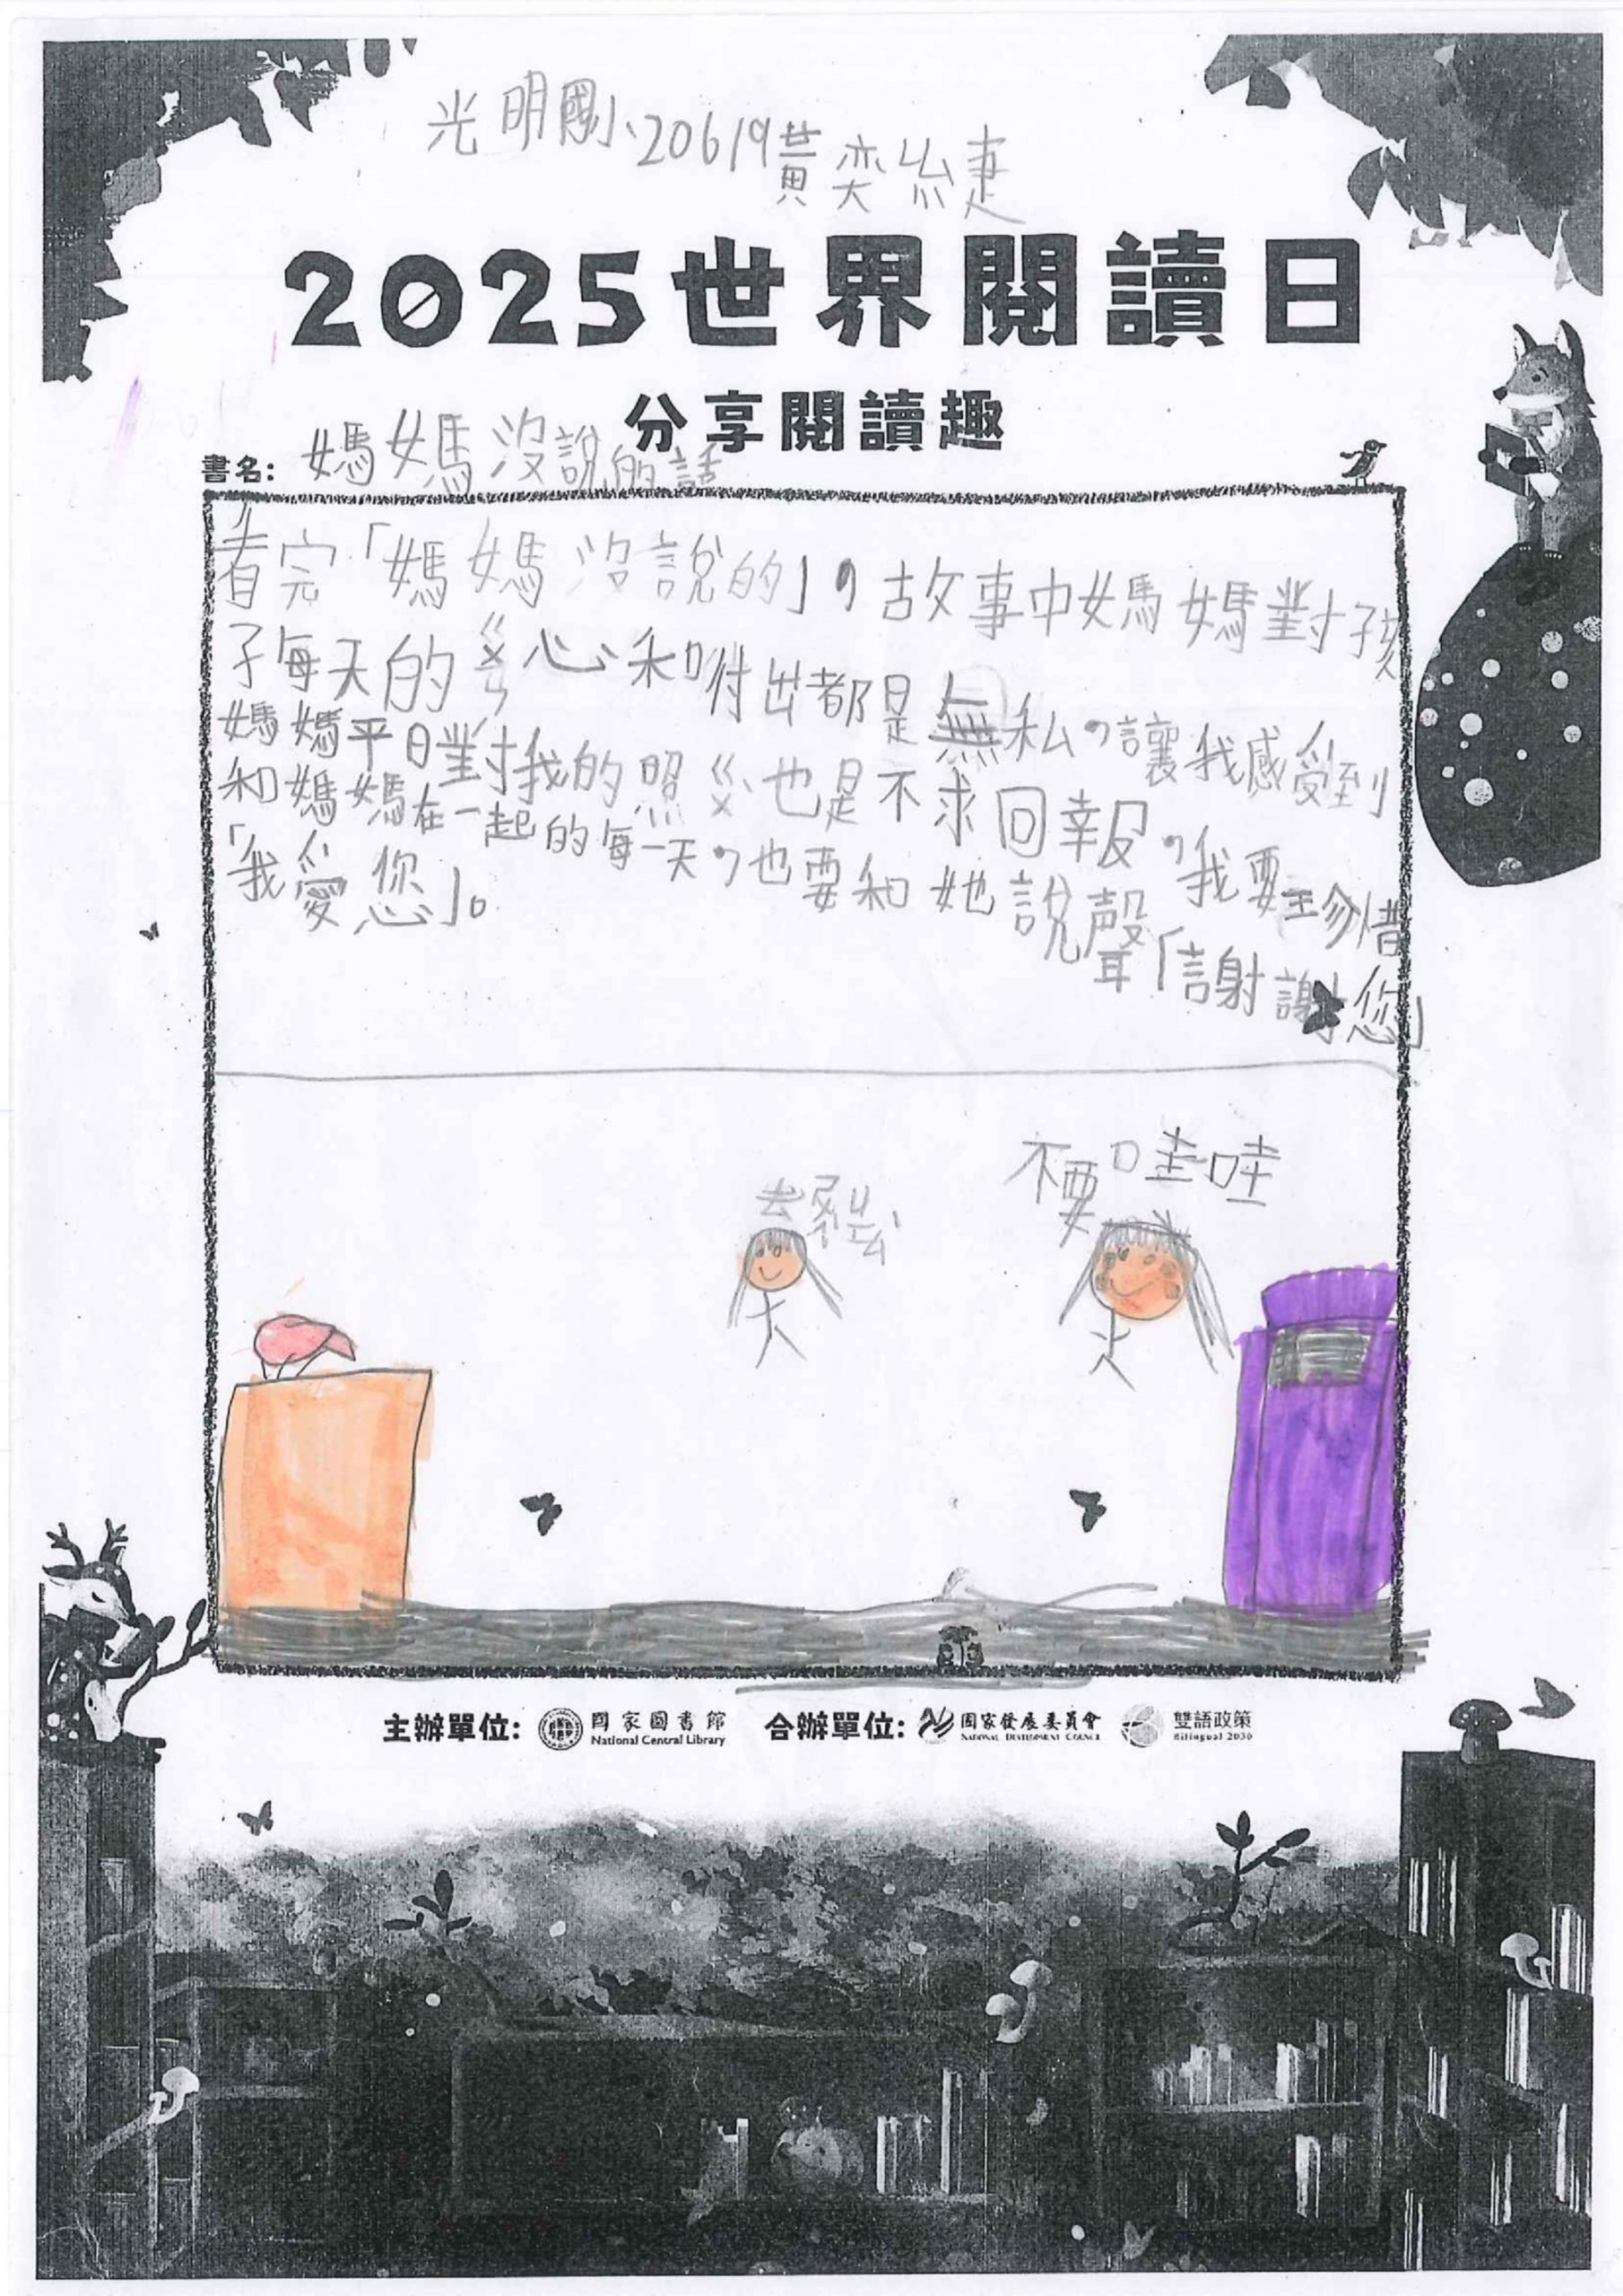 光明國小20619黃奕緁
2025世界閱讀日
分享閱讀趣
書名: 媽媽沒說的話
看完「媽媽沒說的」,故事中媽媽對孩
子每天的ㄍㄨㄢ心和咐出都是無私,讓我感受到
媽媽平日對我的照ㄍㄨˋ也是不求回報,我要珍惜
和媽媽在一起的每一天,也要和她說聲「謝謝您」
「我愛您」。
不要哇哇
主辦單位: 國家圖書館 National Central Library 合辦單位: 國家發展委員會 NATIONAL DEVELOPMENT COUNCIL 雙語政策 Bilingual 2030